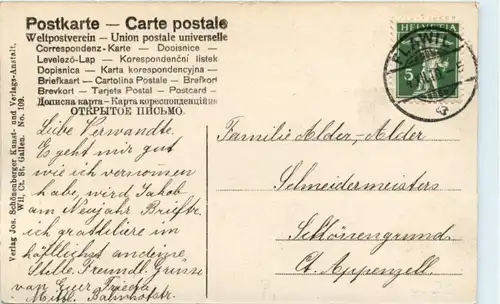 Postkarte — Carte postale
Weltpostverein — Union postale universelle
Correspondenz-Karte — Dopisnice —
Levelezö-Lap — Korespondenční listek
Dopisnica — Karta korespondencyjna —
Briefkaart — Cartolina Postale — Brefkort
Brevkort — Tarjeta Postal — Postcard —
Дописна карта — Карта кореспонденційна
ОТКРЫТОЕ ПИСЬМО.
HELVETIA
5
FLAWIL
Verlag Jos. Schönenberger Kunst- und Verlags-Anstalt.
Wil, Ct. St. Gallen. No. 109.
Liebe Verwandte.
Es geht mir gut
wie ich vernommen
habe, wird Jakob
am Neujahr Briefträ.
ich gratuliere im
höflichst an deine
Stelle. Freundl. Grüsse
von Eurer Frieda
Mittl. Bahnhofstr.
Familie Alder-Alder
Schneidermeisters
Schönengrund
Ct. Appenzell.